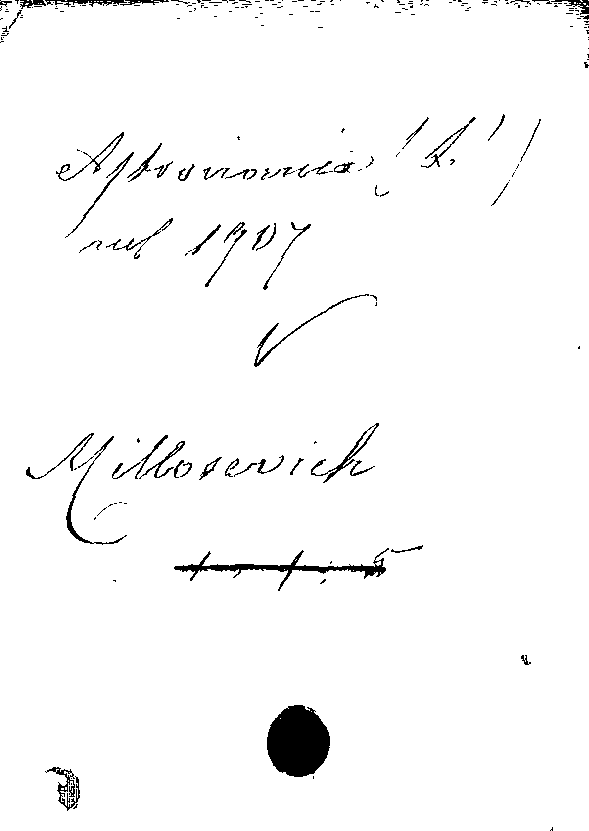 Astronomia (L')
nel 1907
V
Millosevich
1. 1. 5